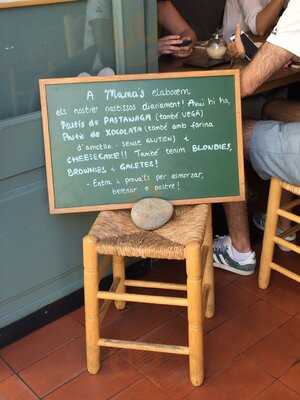 A MAMA'S elaborem
els nostres pastissos diariament! Avui hi ha,
Pastís de PASTANAGA (també VEGÀ)
Pastís de XOCOLATA (també amb farina
d'ametlla - SENSE GLUTEN) i
CHEESECAKE!! També tenim BLONDIES,
BROWNIES i GALETES!
- Entra i prova'ls per esmorzar,
berenar o postre!